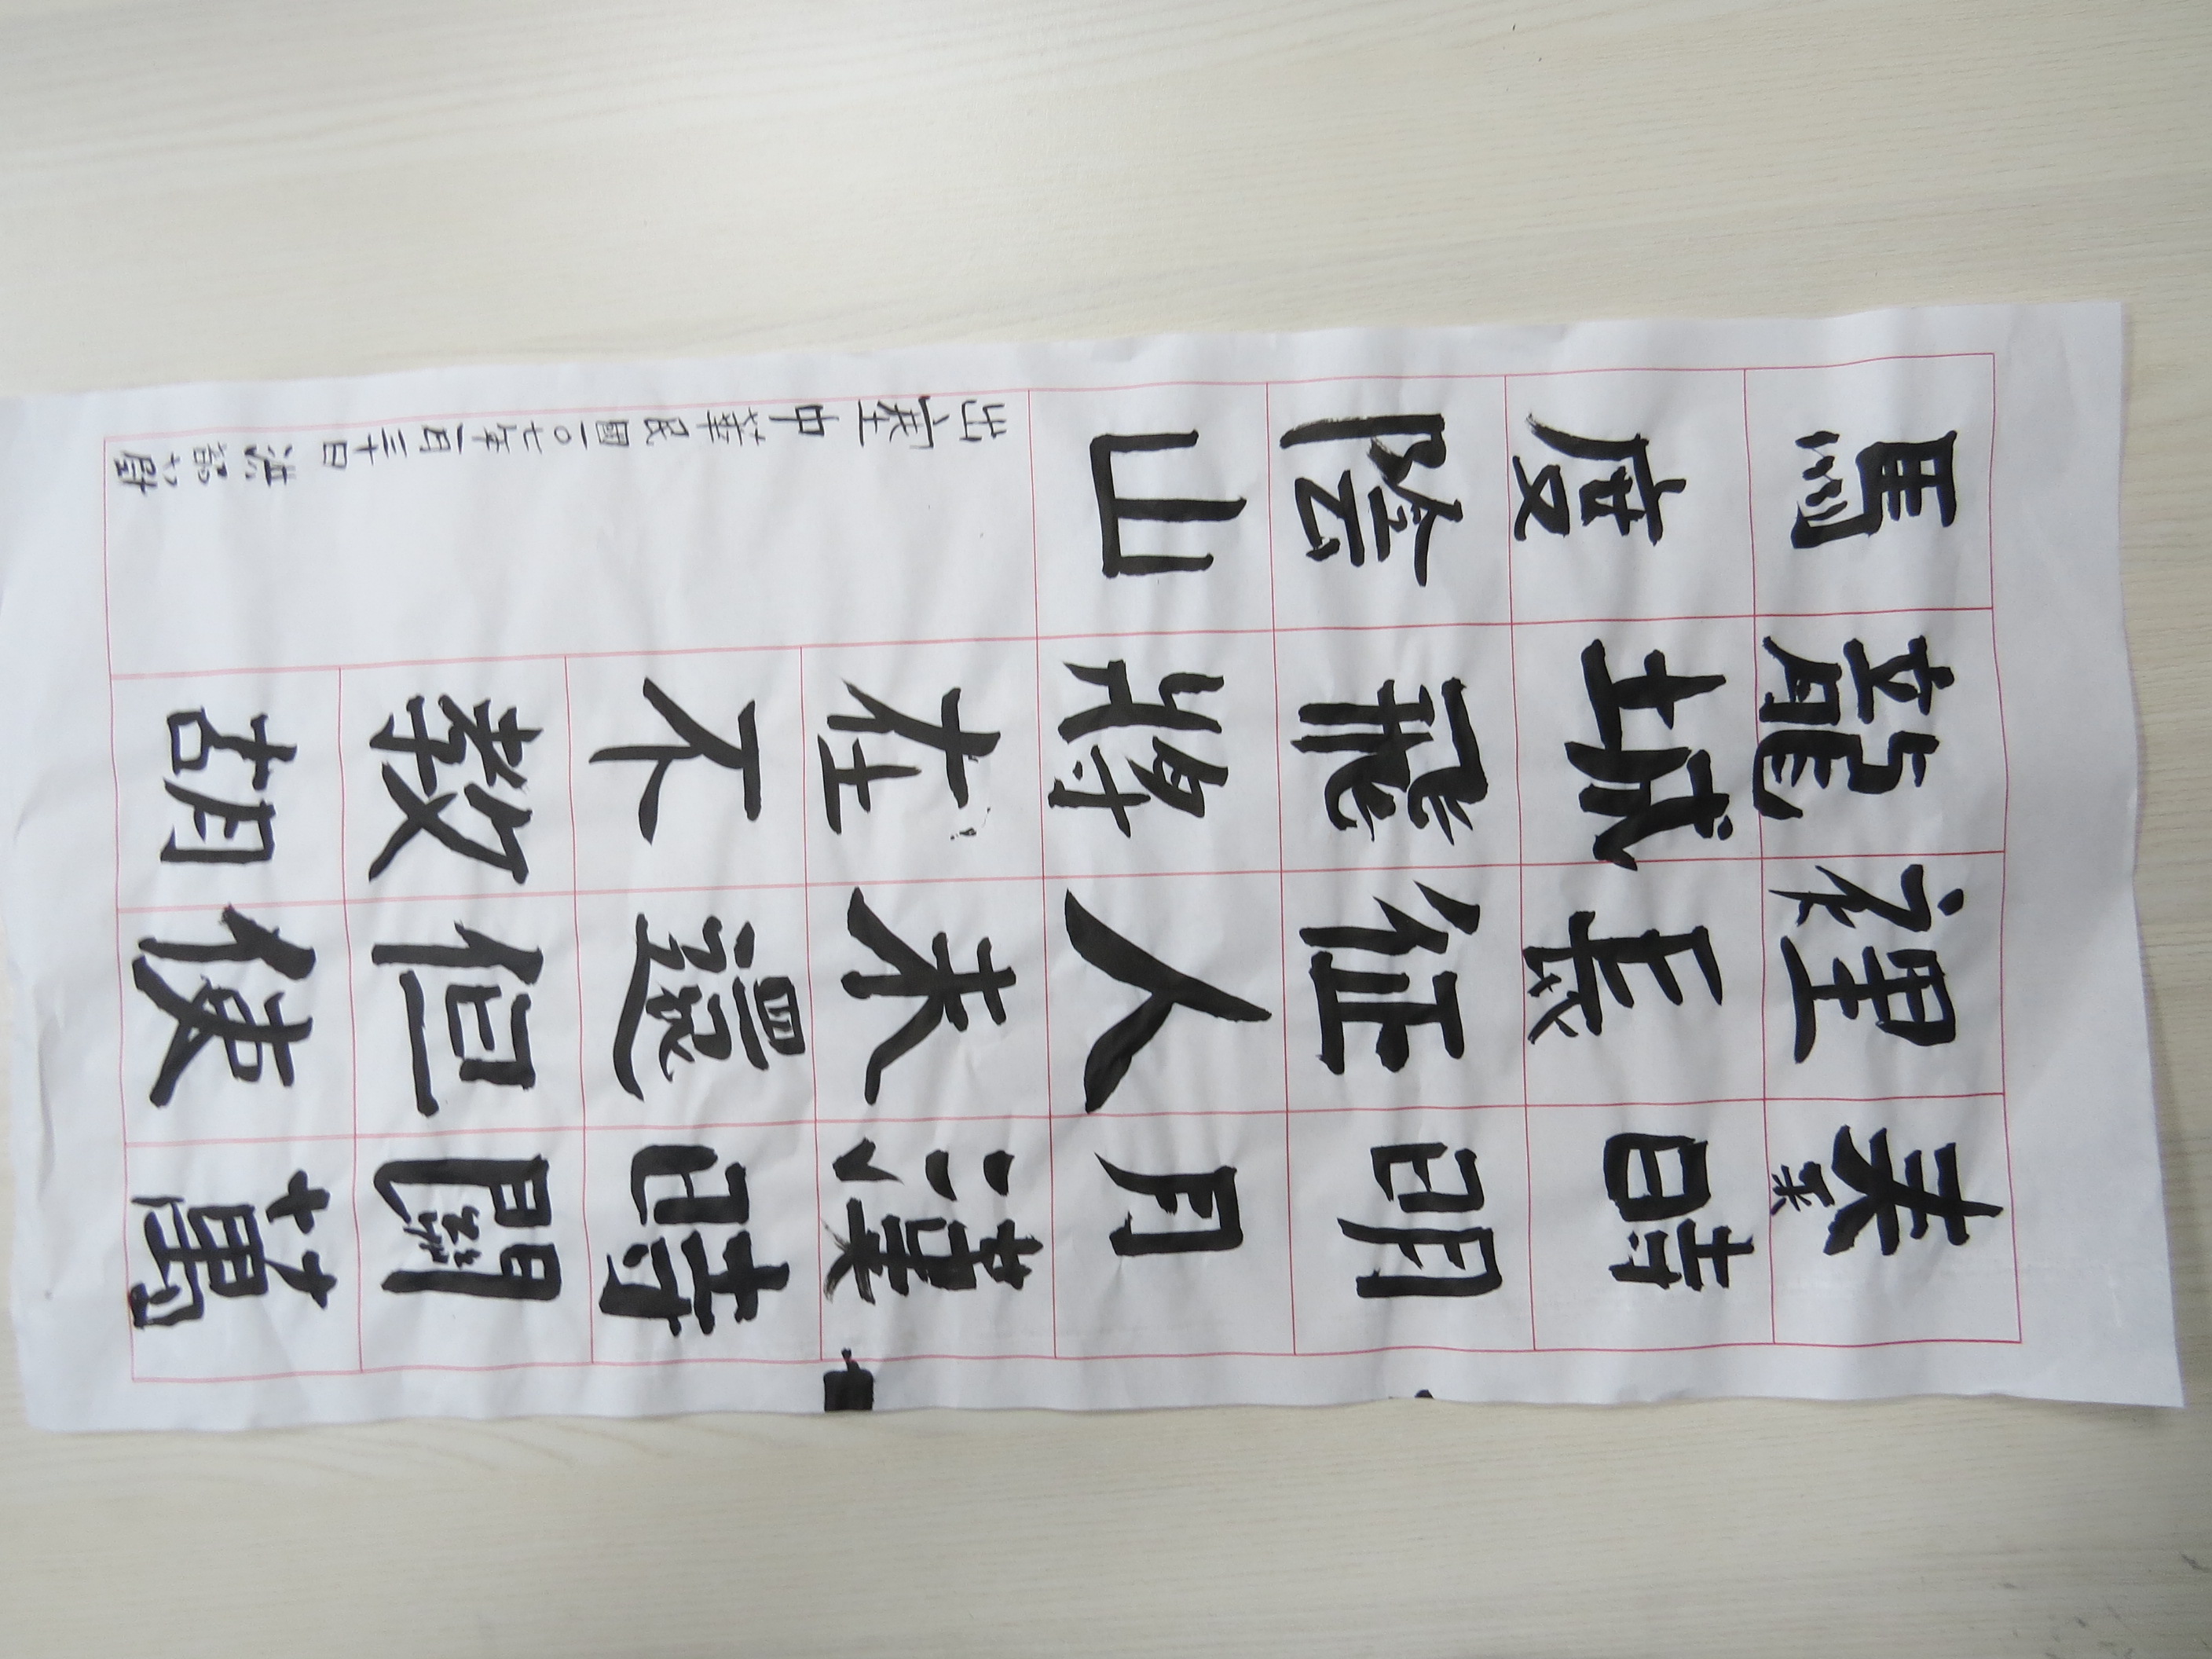 秦時明月漢時關萬
裡長征人未還但使
龍城飛將在不教胡
馬度陰山
出塞 中華民國一〇七年一月三十日 洪